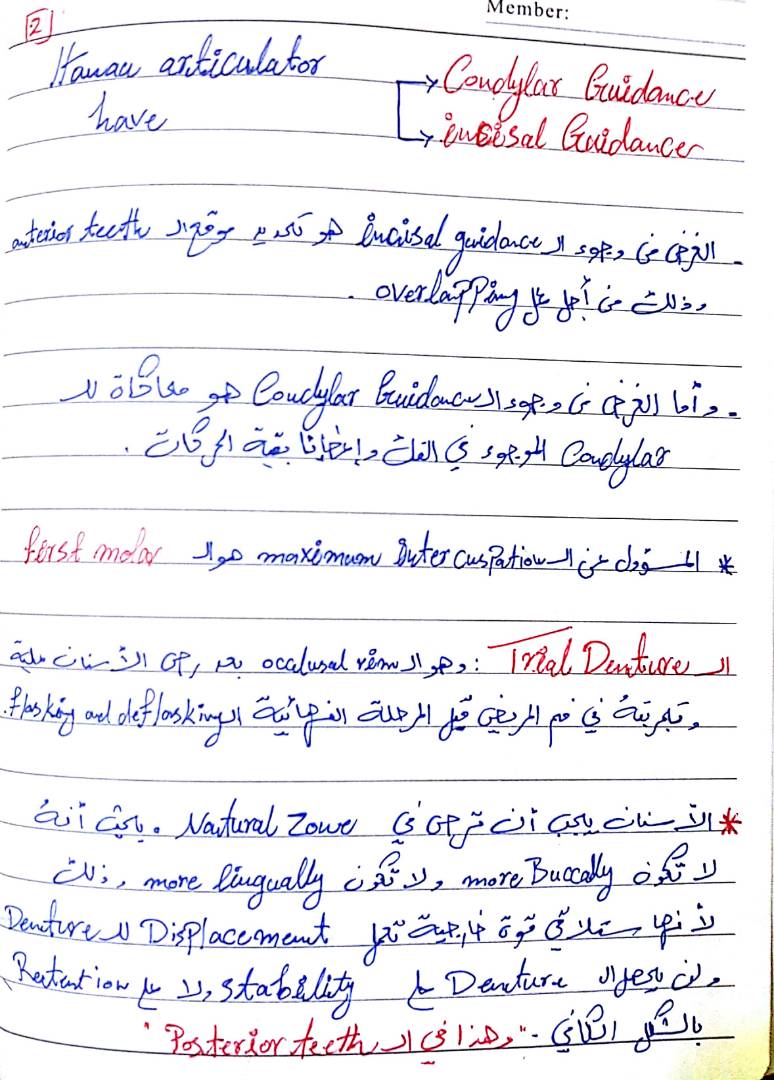 Member:
2
Hanau articulator have
→ Condylar Guidance
→ incisal Guidance
- الغرض من وجود الـ incisal guidance هو تحديد موقع الـ anterior teeth
وذلك من أجل عمل overlapping .
- وأما الغرض من وجود الـ Condylar Guidance هو محاكاة للـ
Condylar الموجود في الفك وإعطائنا بقية الحركات .
* المسؤول عن الـ maximum inter cuspation هو الـ first molar
الـ Trial Denture : وهو الـ occlusal rim بعد رص الأسنان عليه
وتجربته في فم المريض قبل المرحلة النهائية الـ flasking and deflasking.
* الأسنان يجب أن ترص في Natural Zone . بحيث أنه
لا تكون more Buccally ولا تكون more lingually , وذلك
لأنها ستلاقي قوة خارجية تعمل Displacement للـ Denture
ولن يحصل الـ Denture على stability ولا على Retention
بالشكل الكافي - " وهذا في الـ Posterior teeth "